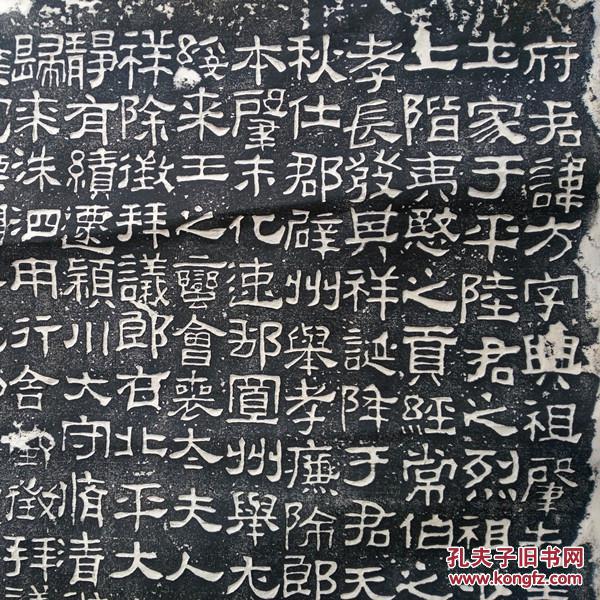 府君諱方字興祖肇先
土家于平陸君之烈祖少
上階夷愍之貢經常伯之
孝長發其祥誕降于君天
秋仕郡辟州舉孝廉除郎
本肇末化速郵置州舉尤
綏来王之蠻會喪太夫人
祥除徵拜議郎右北平大
靜有績遷穎川大守脩清
歸来洙泗用行舍徵拜議
孔夫子旧书网
www.kongfz.com